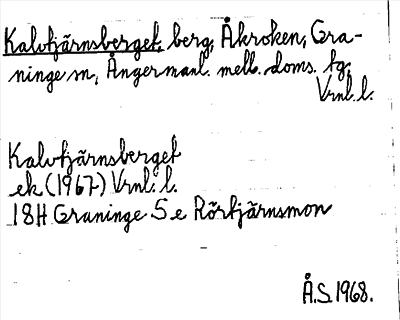 Kalvtjärnsberget, berg, Åkroken, Gra-
ninge sn, Ångermanl. mell. doms. tg,
Vrnl. l.
Kalvtjärnsberget
ek (1967) Vrnl. l.
18H Graninge 5 e Rörtjärnsmon
Å.S. 1968.